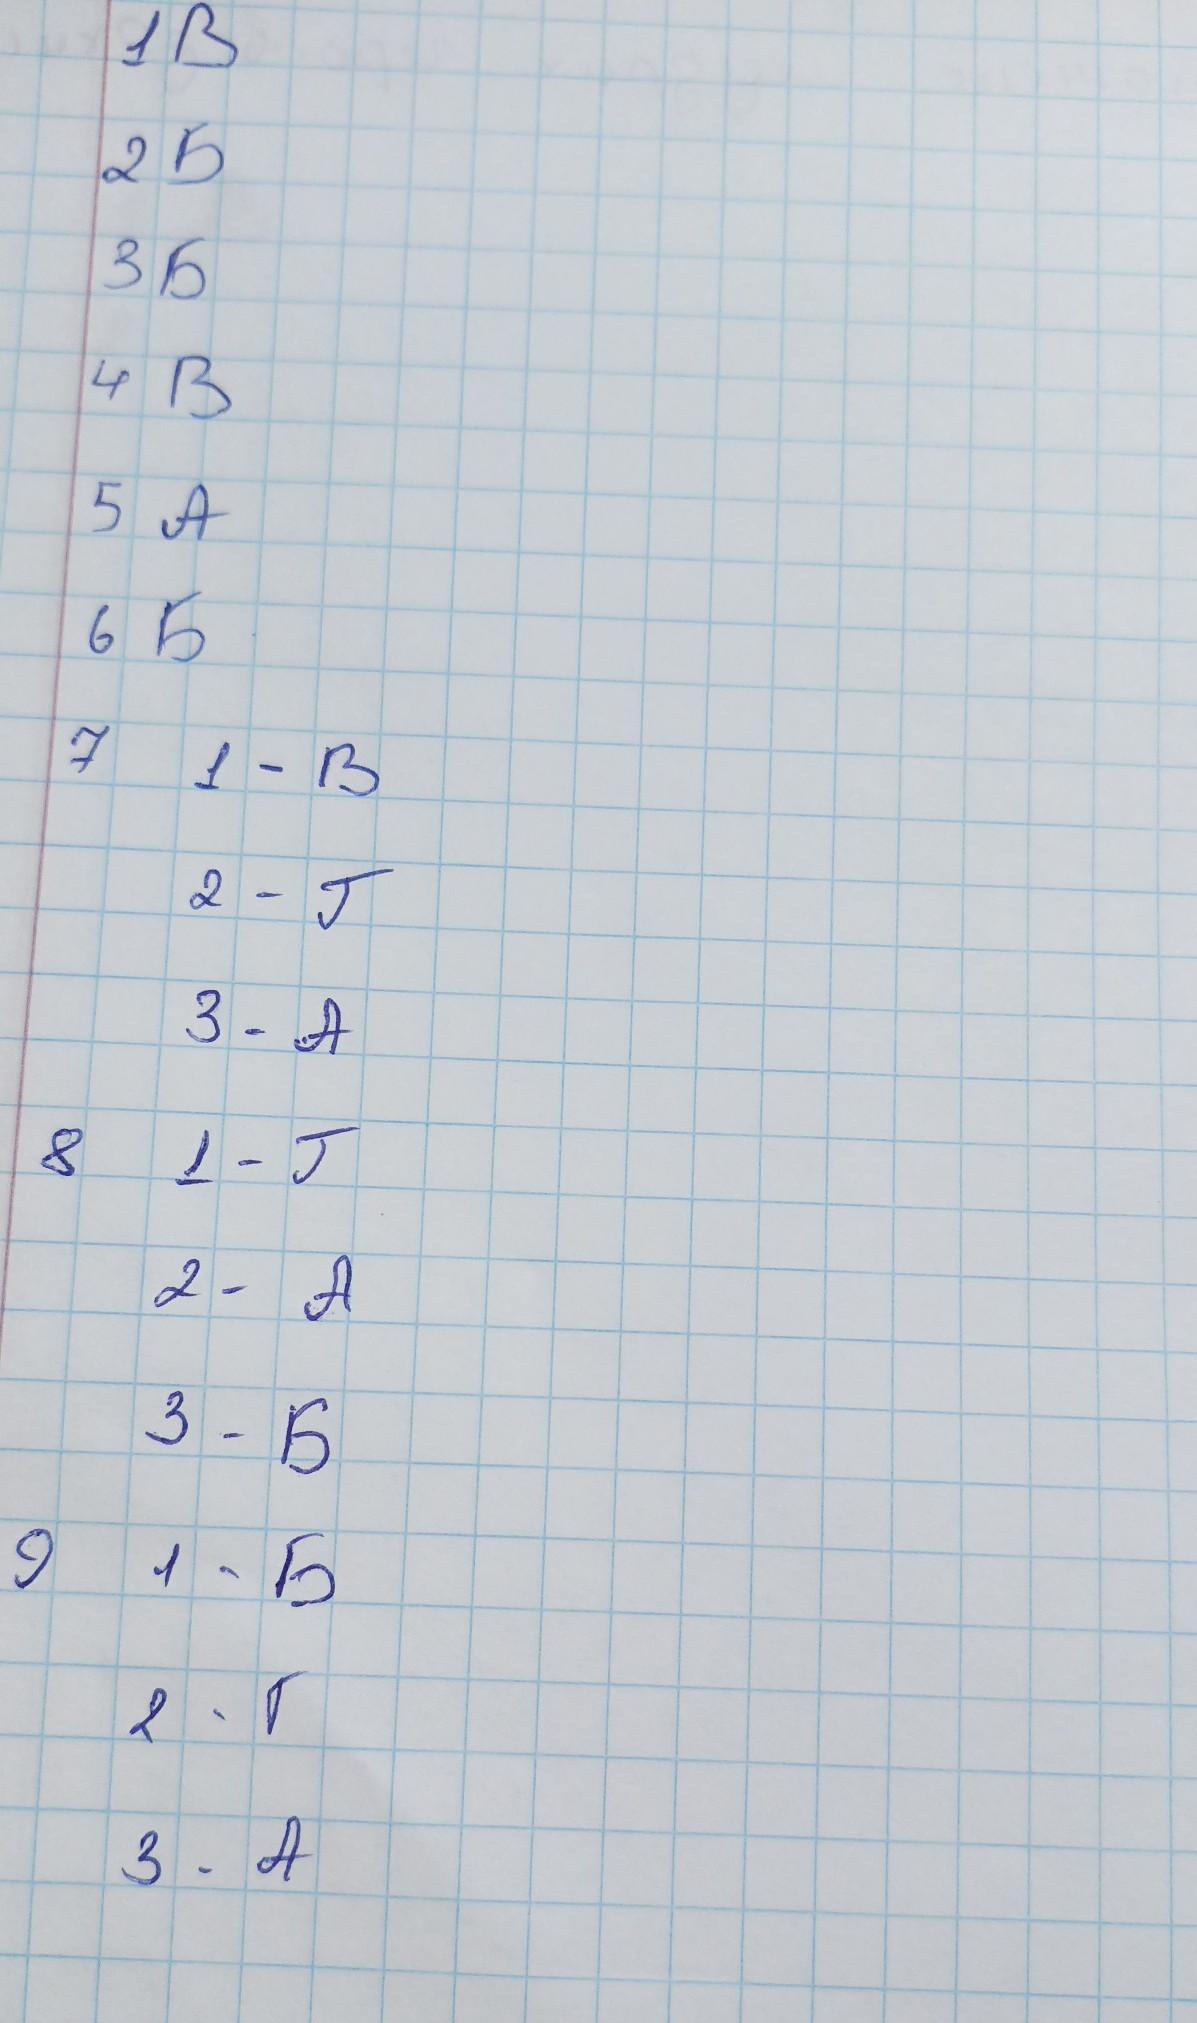 1 В
2 Б
3 Б
4 В
5 А
6 Б
7 1 - В
2 - Г
3 - А
8 1 - Г
2 - А
3 - Б
9 1 - Б
2 - Г
3 - А